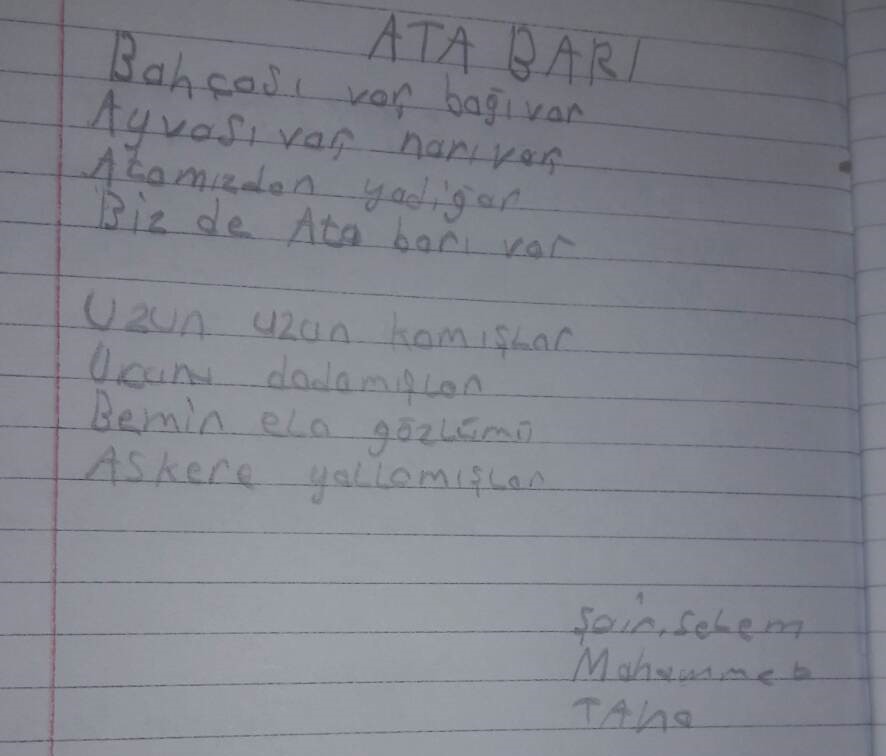 ATA BARI
Bahçası var bağıvar
Ayvası var narıvar
Atamızdan yadiğar
Biz de Ata barı var
Uzun uzun kamışlar
Ucunu dadamışlar
Bemin ela gözlümü
Askere yollamışlar
Şair, Selem
Mahammet
TAha